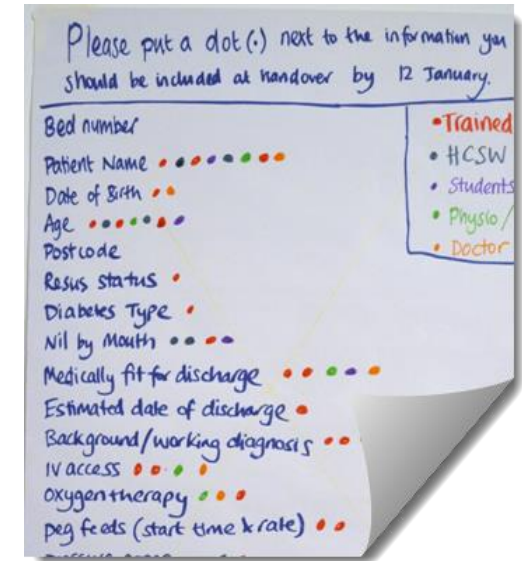 Please put a dot (•) next to the information you
should be included at handover by 12 January.
Bed number
Patient Name
Date of Birth
Age
Postcode
Resus status
Diabetes Type
Nil by Mouth
Medically fit for discharge
Estimated date of discharge
Background/working diagnosis
IV access
oxygen therapy
peg feeds (start time & rate)
• Trained
• HCSW
• Students
• Physio /
• Doctor